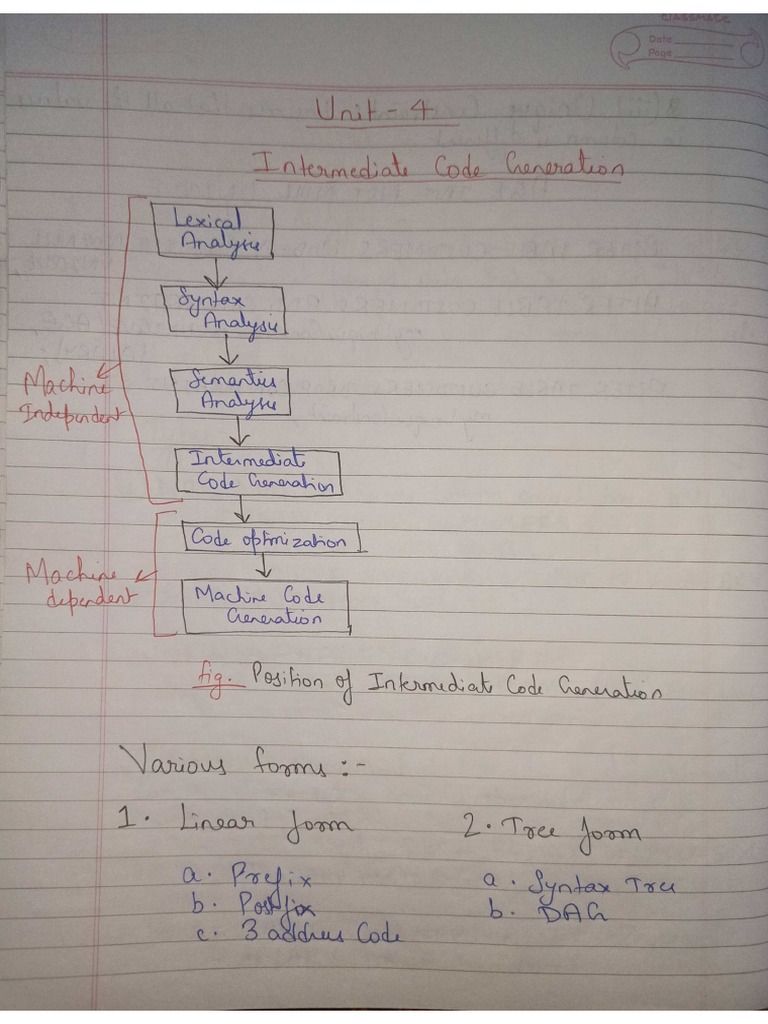 CLASSMATE
Date
Page
Unit - 4
Intermediate Code Generation
Lexical
Analysis
Syntax
Analysis
Semantics
Analysis
Machine
Independent
Intermediate
Code Generation
Code optimization
Machine
dependent
Machine Code
Generation
fig. Position of Intermediate Code Generation
Various forms :-
1. Linear form
2. Tree form
a. Prefix
a. Syntax Tree
b. Postfix
b. DAG
c. 3 address Code